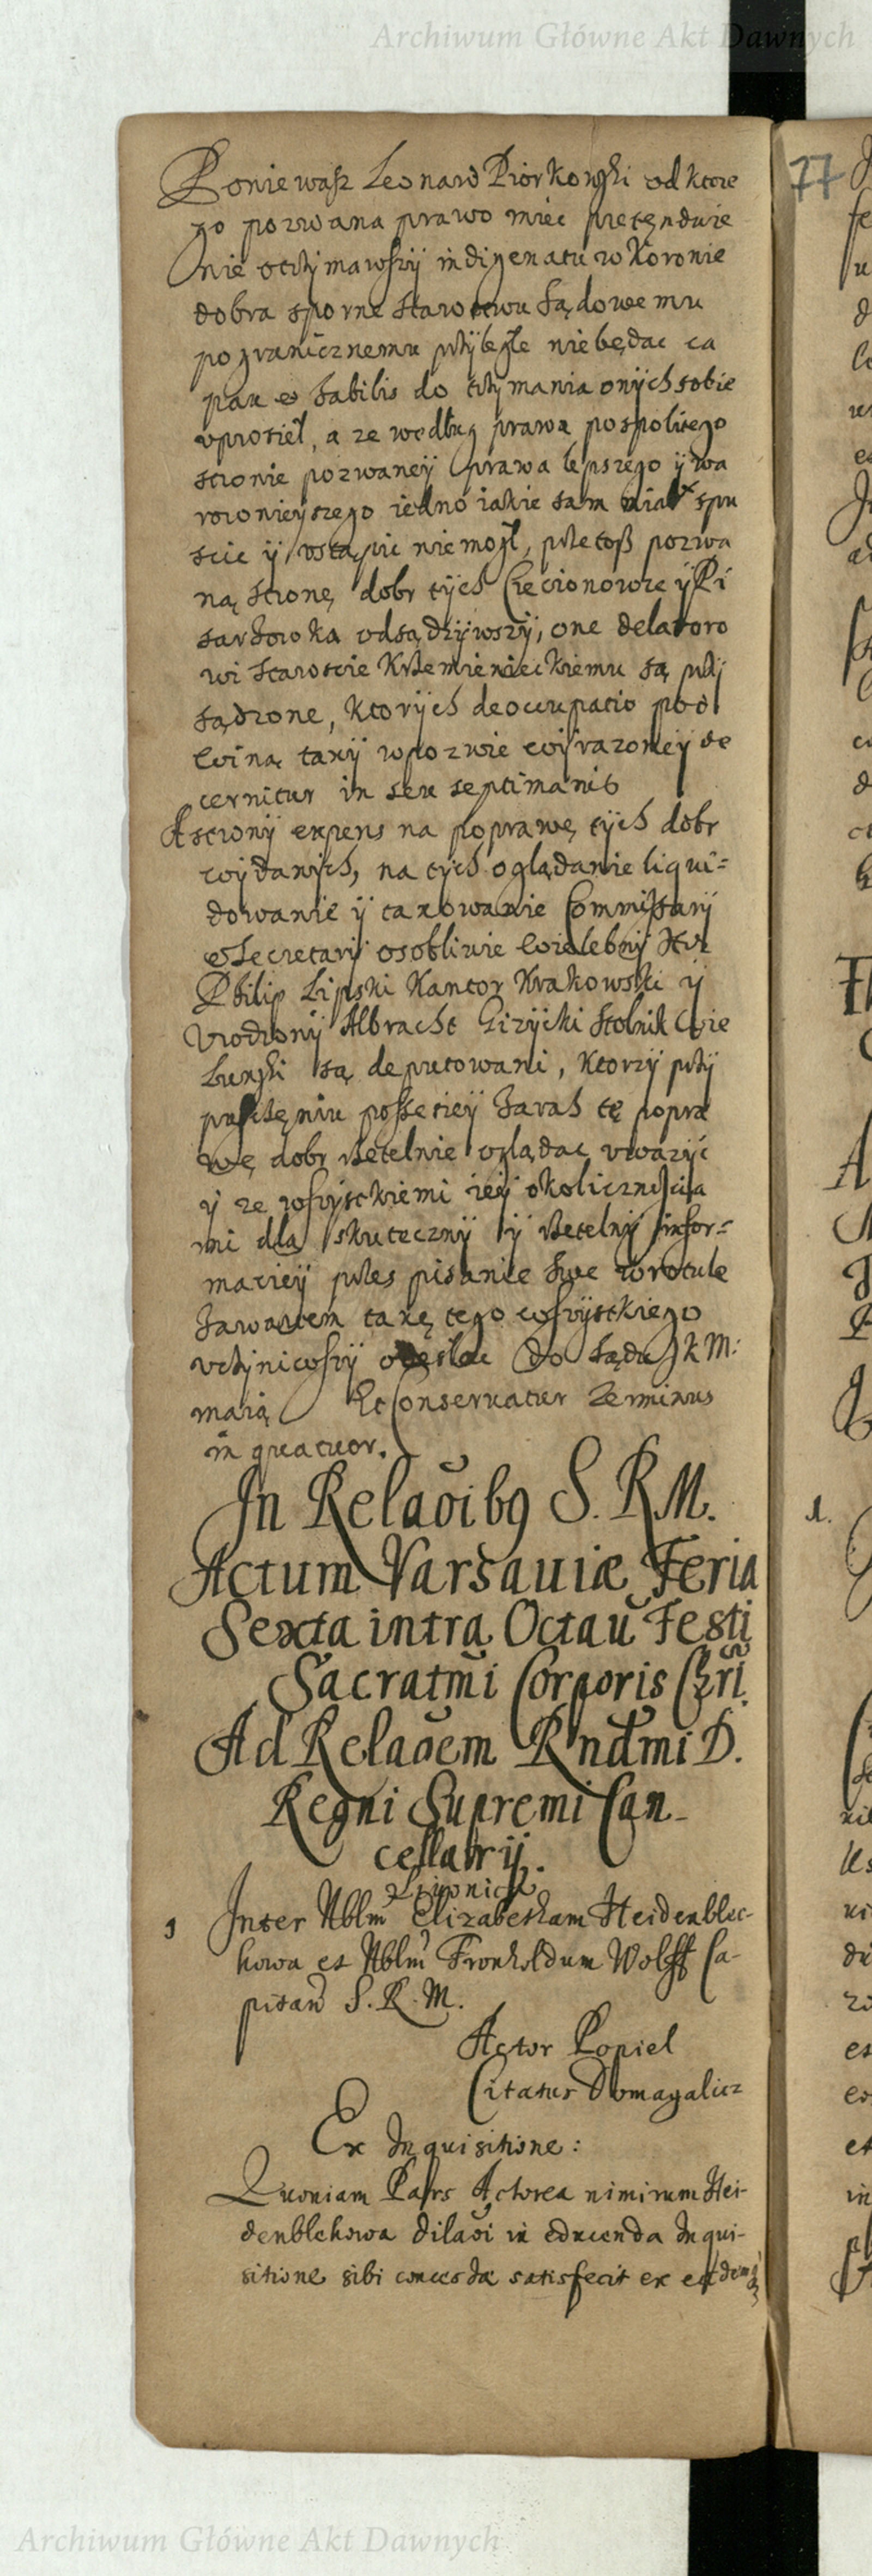 Archiwum Główne Akt Dawnych
Poniewasz Leonard Piorkowski od ktore
go pozwana prawo miec pretęnduie
nie otrzymawszy indigenatu w Koronie
dobra sporne starostwu sądowemu
pogranicznemu przyległe niebędąc ca
pax et habilis do trzymania onych sobie
uprosieł, a ze według prawa pospolitego
stronie pozwaney prawa lepszego y wa
rownieyszego iedno iakie sam miał spu
scic y ustąpic niemogł, przetosz pozwa
ną stronę dobr tych Ciecionowce y Pi
sarzowka odsądziwszy, one delatoro
wi staroscie Krzemienieckiemu są przy
sądzone, Ktorych deoccupatio pod
winą taxy w pozwie wyrazoney de
cernitur in sex septimanis
A strony expens na poprawę tych dobr
wydanych, na tych oglądanie liqui=
dowanie y taxowanie Commissarij
et Secretarij osobliwie wielebny
Philip Lipski Kantor Krakowski y
Urodzony Albracht Gizycki Stolnik Wie
Lunski są deputowani, Ktorzy przy
possessiey zaraz tę popra
wę dobr rzetelnie oglądac uwazyc
y ze wszystkiemi iey okolicznoscia
mi dla skuteczny y rzetelny infor=
maciey przes pisanie swe w rotule
zawartem taxę tego wszystkiego
uczyniwszy odeslac do sądu JKM:
maią Et Conservatur Terminus
in quatuor.
In Relaõibq S. R M.
Actum Varsauiæ Feria
Sexta intra Octaũ Festi
Sacratm̃i Corporis Chri.
Ad Relaõem Rndm̃i D.
Regni Supremi Can-
cellarij.
Livonica
1 Inter Nblm Elizabetham Heidenblec-
howa et Nblm Fronholdum Wolff Ca-
pitan S. R. M.
Actor Popiel
Citatus Domagalicz
Ex Inquisitione:
Quoniam Pars Actorea nimirum Hei-
denblehowa dilaõi in educenda Inqui-
sitione sibi concessæ satisfecit ex
77
1.
Archiwum Główne Akt Dawnych